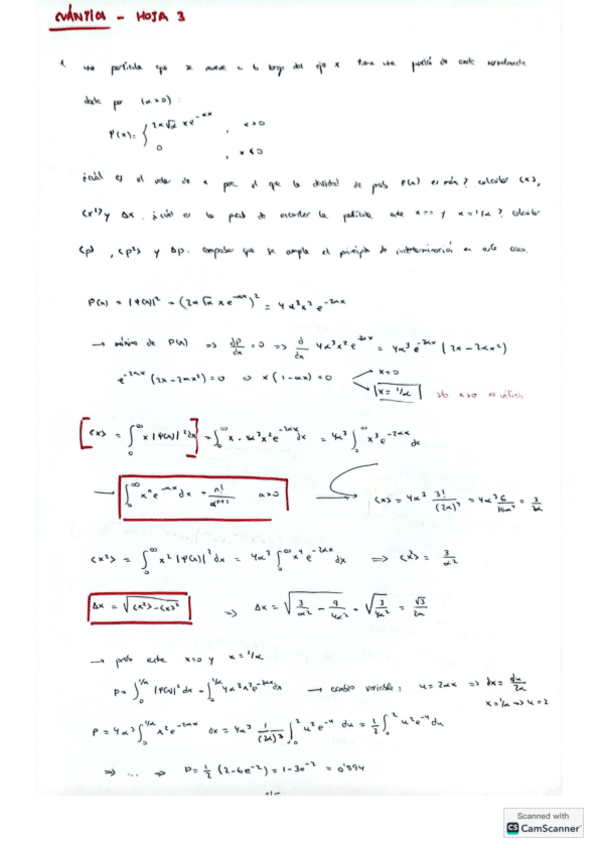 CUÁNTICA - HOJA 3
1. una partícula que se mueve a lo largo del eje x tiene una función de onda
dada por (α>0):
Ψ(x) = { 2α√α x e^{-αx} , x>0
0 , x≤0
¿cuál es el valor de x por el que la densidad de prob P(x) es máx? calcular <x>,
<x²> y Δx. ¿cuál es la prob de encontrar la partícula entre x=0 y x=1/α? calcular
<p>, <p²> y Δp. comprobar que se cumple el principio de indeterminación en este caso.
P(x) = |Ψ(x)|² = (2α√α x e^{-αx})² = 4α³x² e^{-2αx}
→ máximo de P(x) => dP/dx = 0 => d/dx 4α³x²e^{-2αx} = 4α³e^{-2αx} (2x - 2αx²)
e^{-2αx} (2x - 2αx²) = 0 => x(1-αx) = 0
x=0
x = 1/α
[<x> = ∫₀^∞ x|Ψ(x)|²dx] = ∫₀^∞ x · 4α³x²e^{-2αx}dx = 4α³ ∫₀^∞ x³e^{-2αx} dx
→ ∫₀^∞ xⁿe^{-ax}dx = n!/aⁿ⁺¹ a>0 → <x> = 4α³ 3!/(2α)⁴ = 4α³ 6/16α⁴ = 3/2α
<x²> = ∫₀^∞ x²|Ψ(x)|²dx = 4α³ ∫₀^∞ x⁴e^{-2αx} dx => <x²> = 3/α²
Δx = √(<x²> - <x>²) => Δx = √(3/α² - 9/4α²) = √(3/4α²) = √3/2α
→ prob entre x=0 y x=1/α
P = ∫₀^{1/α} |Ψ(x)|²dx = ∫₀^{1/α} 4α³x²e^{-2αx}dx → cambio variable: u = 2αx => dx = du/2α
x=1/α => u=2
P = 4α³ ∫₀^{1/α} x²e^{-2αx} dx = 4α³ 1/(2α)³ ∫₀² u²e^{-u} du = 1/2 ∫₀² u²e^{-u}du
=> ... => P = 1/2 (2-6e⁻²) = 1-3e⁻² = 0'594
Scanned with
CS CamScanner